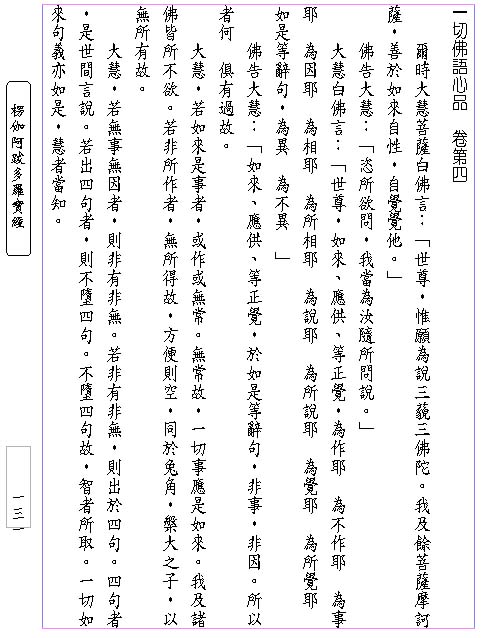 一切佛語心品　卷第四
　　爾時大慧菩薩白佛言：「世尊，惟願為說三藐三佛陀。我及餘菩薩摩訶
薩，善於如來自性，自覺覺他。」
　　佛告大慧：「恣所欲問，我當為汝隨所問說。」
　　大慧白佛言：「世尊，如來、應供、等正覺，為作耶　為不作耶　為事
耶　為因耶　為相耶　為所相耶　為說耶　為所說耶　為覺耶　為所覺耶
如是等辭句，為異　為不異　」
　　佛告大慧：「如來、應供、等正覺，於如是等辭句，非事，非因。所以
者何　俱有過故。
　　大慧，若如來是事者，或作或無常。無常故，一切事應是如來。我及諸
佛皆所不欲。若非所作者，無所得故，方便則空，同於兔角，槃大之子，以
無所有故。
　　大慧，若無事無因者，則非有非無。若非有非無，則出於四句。四句者
，是世間言說。若出四句者，則不墮四句。不墮四句故，智者所取。一切如
來句義亦如是，慧者當知。
楞伽阿跋多羅寶經
一三一